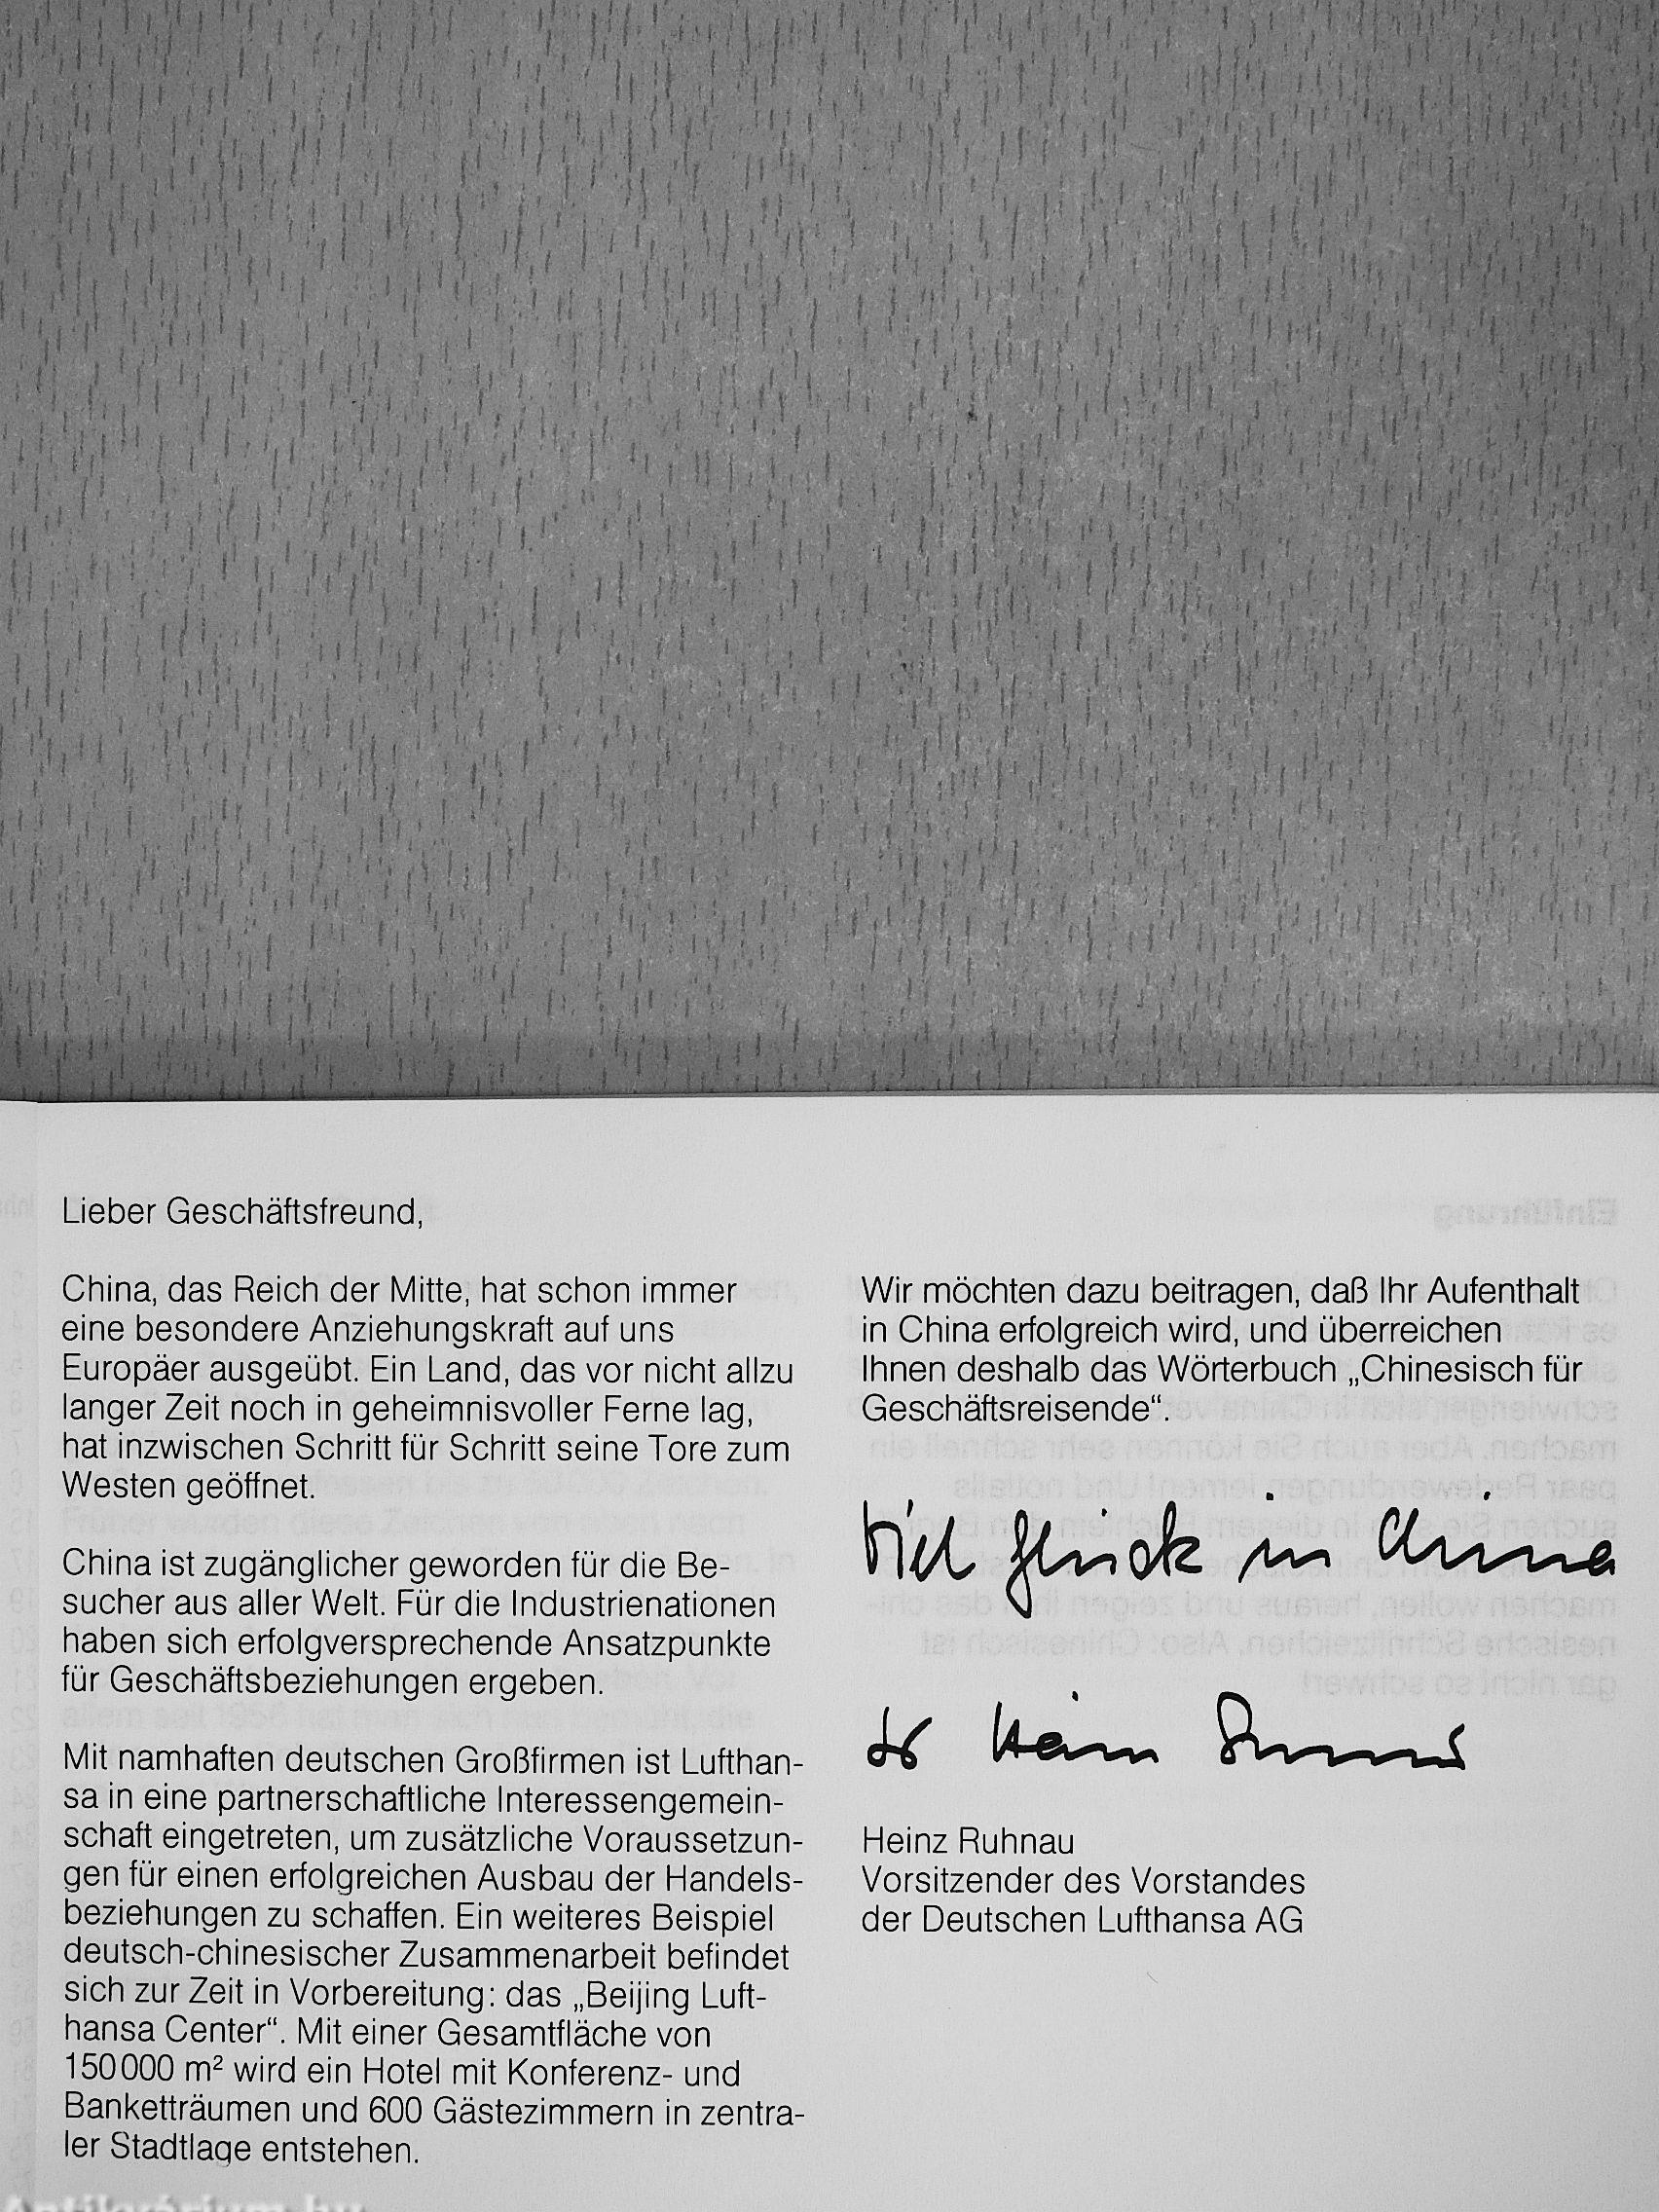 Lieber Geschäftsfreund,
China, das Reich der Mitte, hat schon immer
eine besondere Anziehungskraft auf uns
Europäer ausgeübt. Ein Land, das vor nicht allzu
langer Zeit noch in geheimnisvoller Ferne lag,
hat inzwischen Schritt für Schritt seine Tore zum
Westen geöffnet.
China ist zugänglicher geworden für die Be-
sucher aus aller Welt. Für die Industrienationen
haben sich erfolgversprechende Ansatzpunkte
für Geschäftsbeziehungen ergeben.
Mit namhaften deutschen Großfirmen ist Lufthan-
sa in eine partnerschaftliche Interessengemein-
schaft eingetreten, um zusätzliche Voraussetzun-
gen für einen erfolgreichen Ausbau der Handels-
beziehungen zu schaffen. Ein weiteres Beispiel
deutsch-chinesischer Zusammenarbeit befindet
sich zur Zeit in Vorbereitung: das „Beijing Luft-
hansa Center“. Mit einer Gesamtfläche von
150 000 m² wird ein Hotel mit Konferenz- und
Banketträumen und 600 Gästezimmern in zentra-
ler Stadtlage entstehen.
Wir möchten dazu beitragen, daß Ihr Aufenthalt
in China erfolgreich wird, und überreichen
Ihnen deshalb das Wörterbuch „Chinesisch für
Geschäftsreisende“.
Viel Glück in China
Heinz Ruhnau
Vorsitzender des Vorstandes
der Deutschen Lufthansa AG
Antikvárium.hu